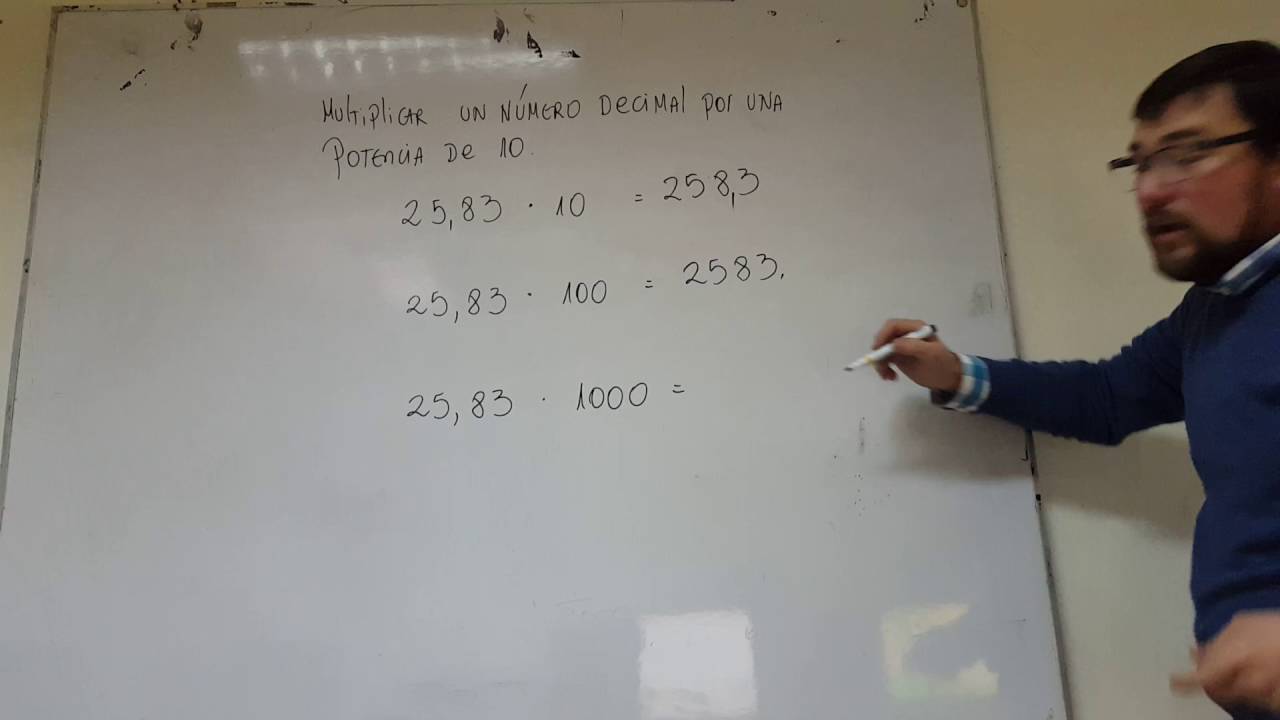 Multiplicar un número decimal por una
potencia de 10.
25,83 · 10 = 258,3
25,83 · 100 = 2583,
25,83 · 1000 =